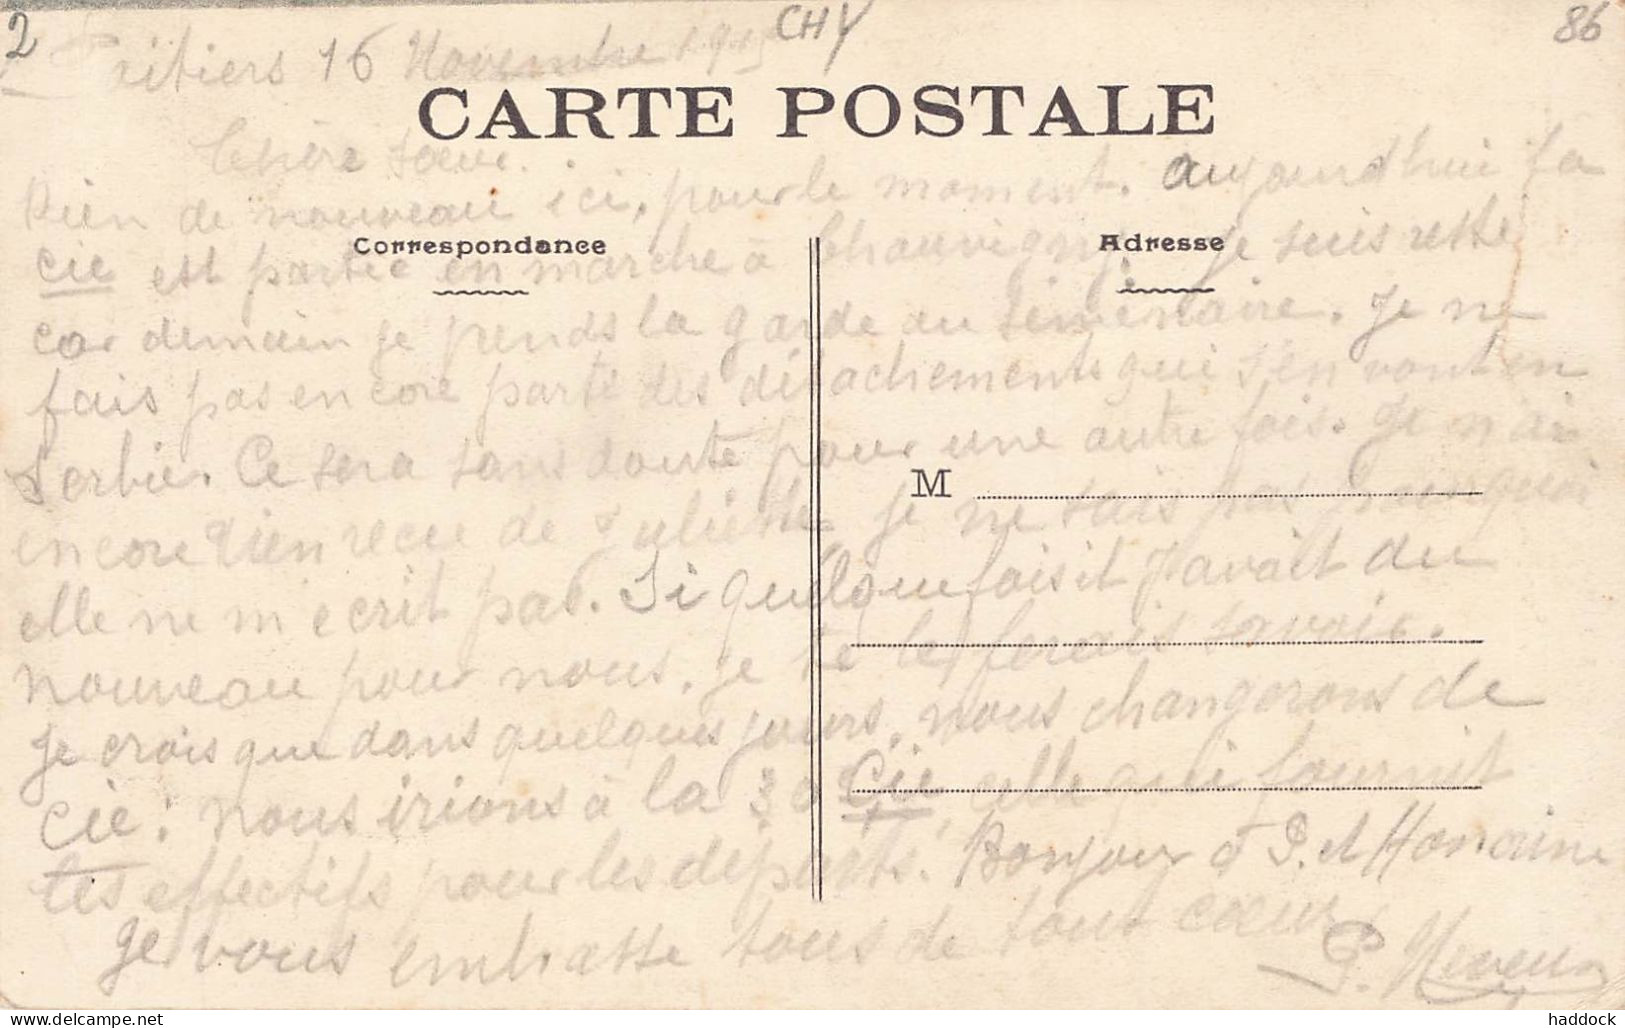 2
CHY
86
Poitiers 16 Novembre 1915
CARTE POSTALE
Chère sœur.
Rien de nouveau ici, pour le moment. aujourd'hui la
Correspondance
Adresse
Cie est partie en marche à Chauvigny. Je suis resté
car demain je prends la garde au séminaire. Je ne
fais pas encore parti des détachements qui s'en vont en
Serbie. Ce sera sans doute pour une autre fois. Je n'ai
M
encore rien recu de Juliette. Je ne sais pas pourquoi
elle ne m'ecrit pas. Si quelquefois il y avait du
nouveau pour nous, je te le ferais savoir.
Je crois que dans quelques jours, nous changerons de
Cie: nous irions à la 30e Cie, celle qui fournit
les effectifs pour les départs. Bonjour à P. et
Je vous embrasse tous de tout cœur
P. Neveu
haddock
Delcampe.net